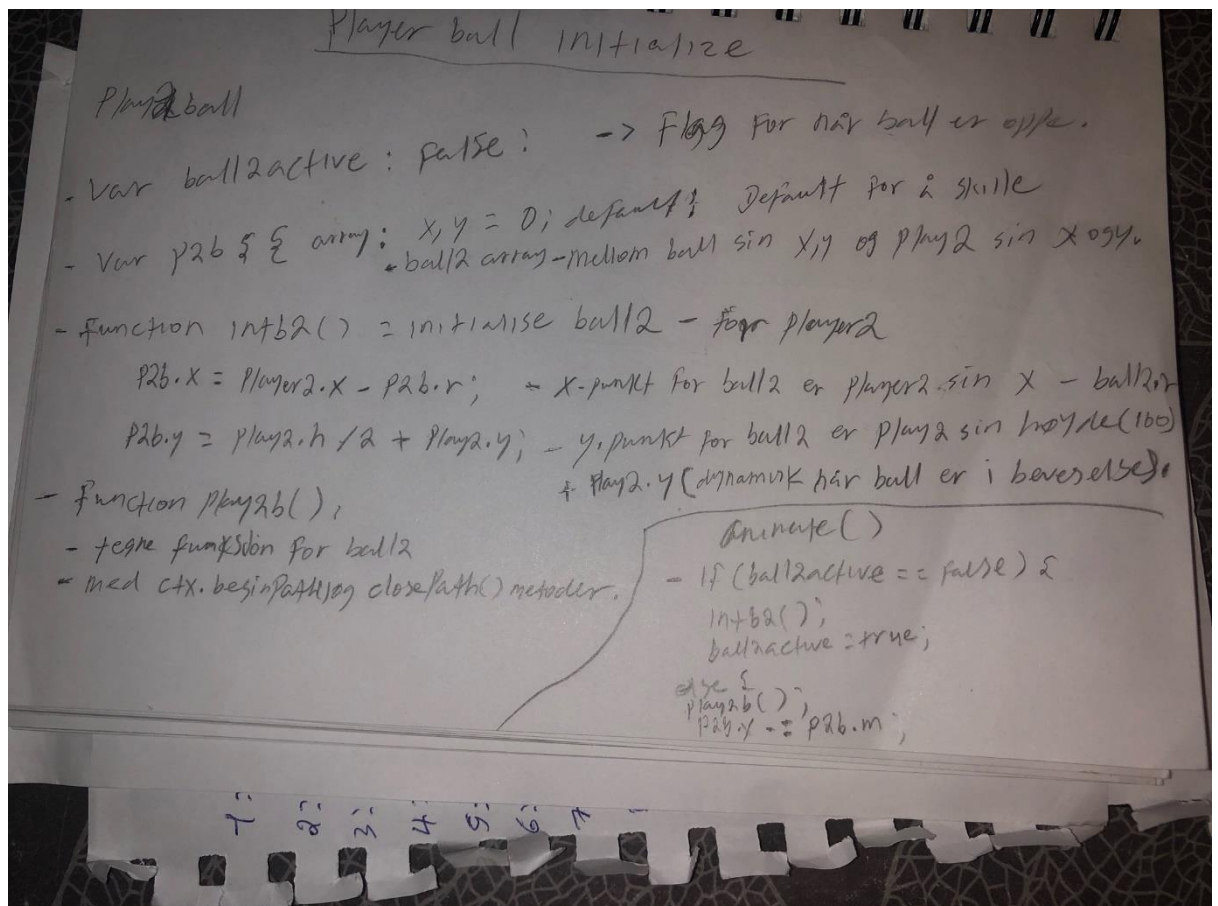 Player ball initialize
Play2ball
- Var ball2active : false; -> Flagg for når ball er oppe.
- Var p2b { { array: x,y = 0; default; Default for å skille
- ball2 array - mellom ball sin x,y og play2 sin x og y.
- Function intb2() = initialise ball2 - for player2
p2b.x = Player2.x - p2b.r; - x-punkt for ball2 er player2 sin x - ball2.r
P2b.y = play2.h /2 + Play2.y; - y.punkt for ball2 er play2 sin høyde(160)
+ Play2.y (dynamisk når ball er i bevegelse).
- Function Play2b();
- tegne funksjon for ball2
- med ctx.beginPath()og closePath() metoder.
animate()
- If (ball2active == false) {
intb2();
ball2active = true;
else {
play2b();
p2b.x -= p2b.m;
1:
2:
3:
4:
5:
6:
7